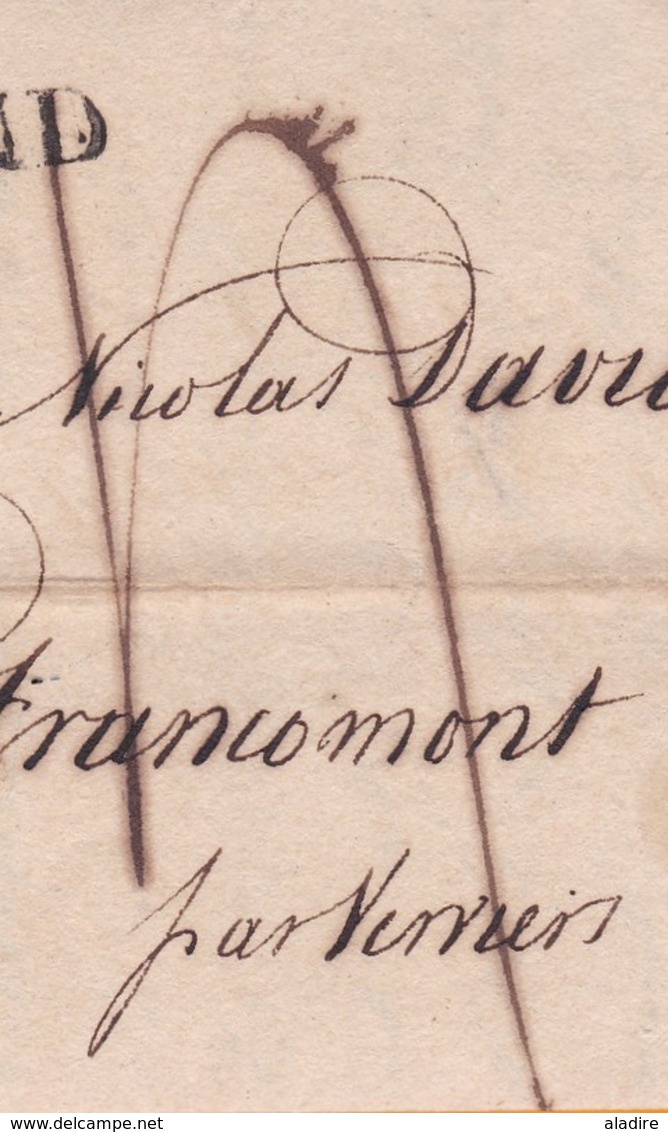 ND
Nicolas David
Francomont
par Verviers
www.delcampe.net
aladire